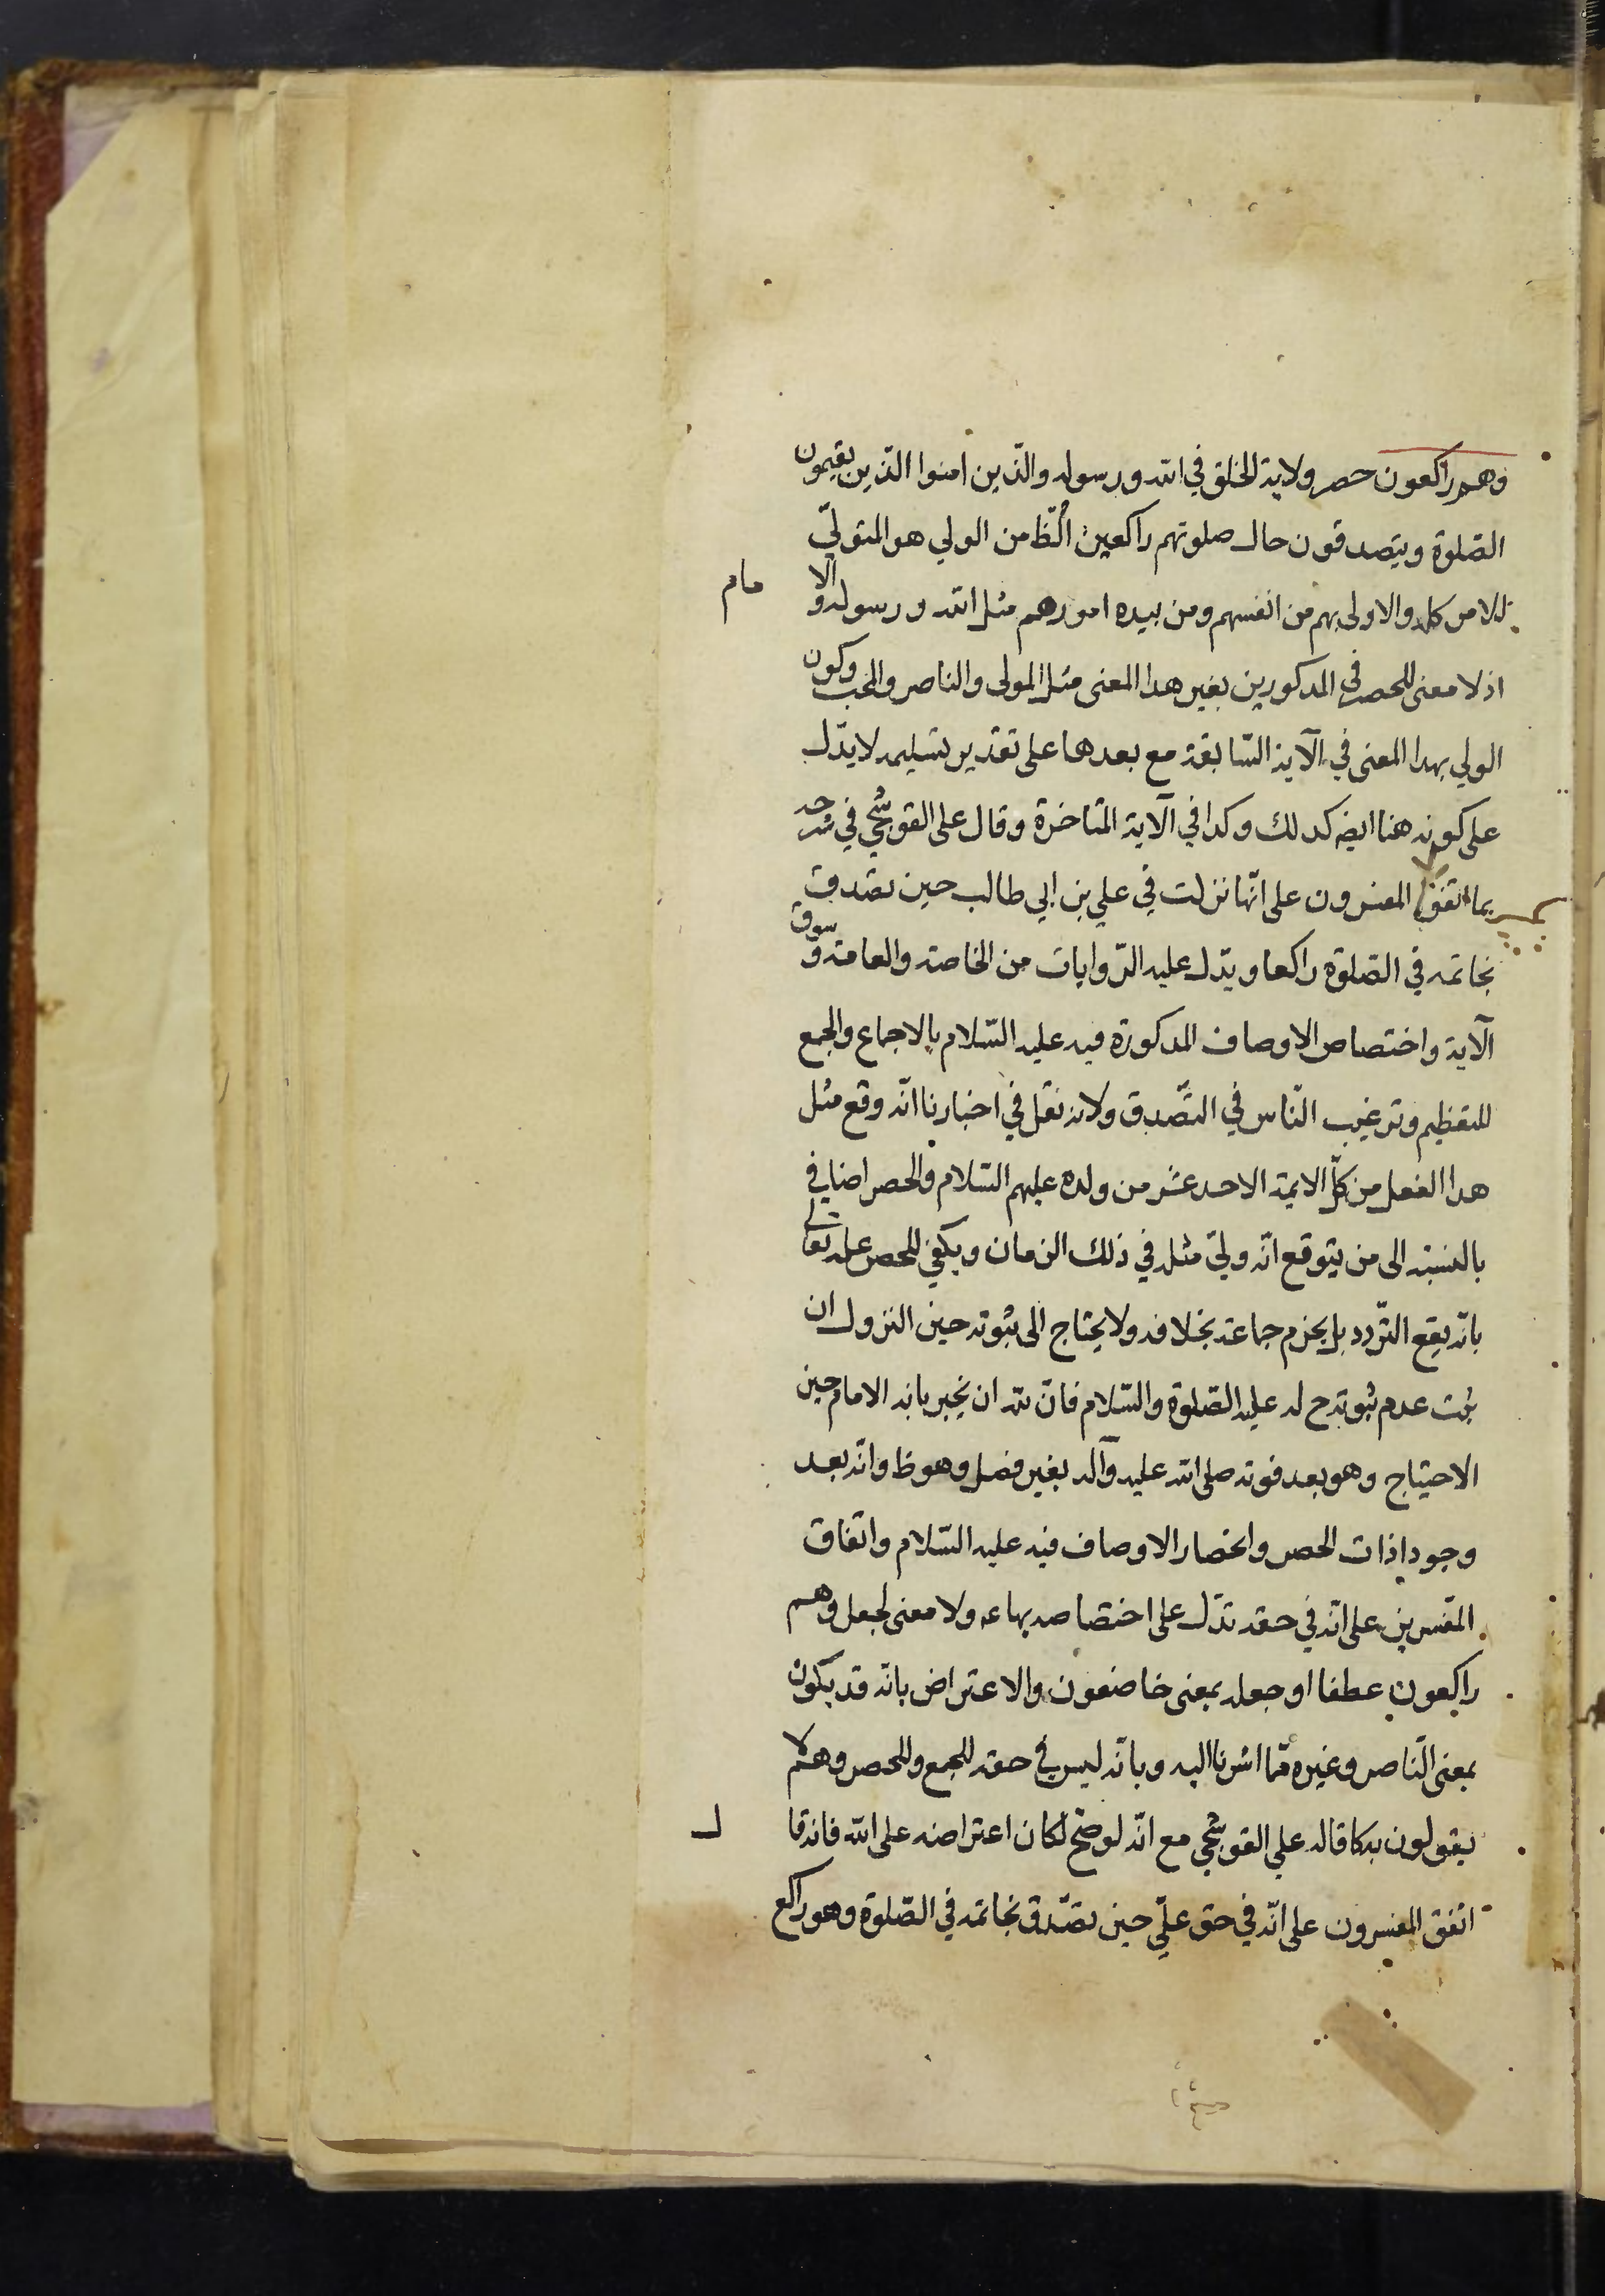 وهم راكعون حصر ولاية الخلق في الله ورسوله والّذين امنوا الّذين يقيمون
الصّلوة ويتصدقون حال صلوتهم راكعين الظ من الولي هو المتولّي
للامر كله والاولى بهم من انفسهم ومن بيده امورهم مثل الله ورسوله والامام
اذ لا معنى للحصر في المذكورين بغير هذا المعنى مثل المولى والناصر والمحب وكون
الولي بهذا المعنى في الآية السّابقة مع بعدها على تقدير تسليمه لا يدّل
على كونه هنا ايضه كذلك وكذا في الآية المتاخرة وقال علي القوشجي في شرحه
اتفق المفسرون على انّها نزلت في علي بن ابي طالب حين تصدق
بخاتمه في الصّلوة راكعا ويدّل عليه الرّوايات من الخاصة والعامة وسوق
الآية واختصاص الاوصاف المذكورة فيه عليه السّلام بالاجماع والجمع
للتعظيم وترغيب النّاس في التّصدق ولانه نقل في اخبارنا انّه وقع مثل
هذا الفعل من كلّ الايمة الاحد عشر من ولده عليهم السّلام والحصر اضافي
بالنسبة الى من يتوقع انّه وليّ مثله في ذلك الزمان ويكفي للحصر علمه تعالى
بانّه يقع التّردد بل يجزم جماعة بخلافه ولا يحتاج الى ثبوته حين النزول ان
ثبت عدم ثبوته ح له عليه الصّلوة والسّلام فانّ لله ان يخبر بانه الامام حين
الاحتياج وهو بعد فوته صلى الله عليه وآله بغير فصل وهو ظ وانّه بعد
وجود اذات الحصر وانحصار الاوصاف فيه عليه السّلام واتفاق
المفسرين على انّه في حقه تدّل على اختصاصه بها عه ولا معنى لجعل وهم
راكعون عطفا او جعله بمعنى خاضعون والاعتراض بانّه قد يكون
بمعنى النّاصر وغيره ممّا اشرنا اليه وبانّه ليس في حقه للجمع وللحصر وهم لا
يقولون به كما قاله علي القوشجي مع انّه لو صحّ لكان اعتراضه على الله فانه قال
اتفق المفسرون على انّه في حق عليّ حين تصّدق بخاتمه في الصّلوة وهو راكع